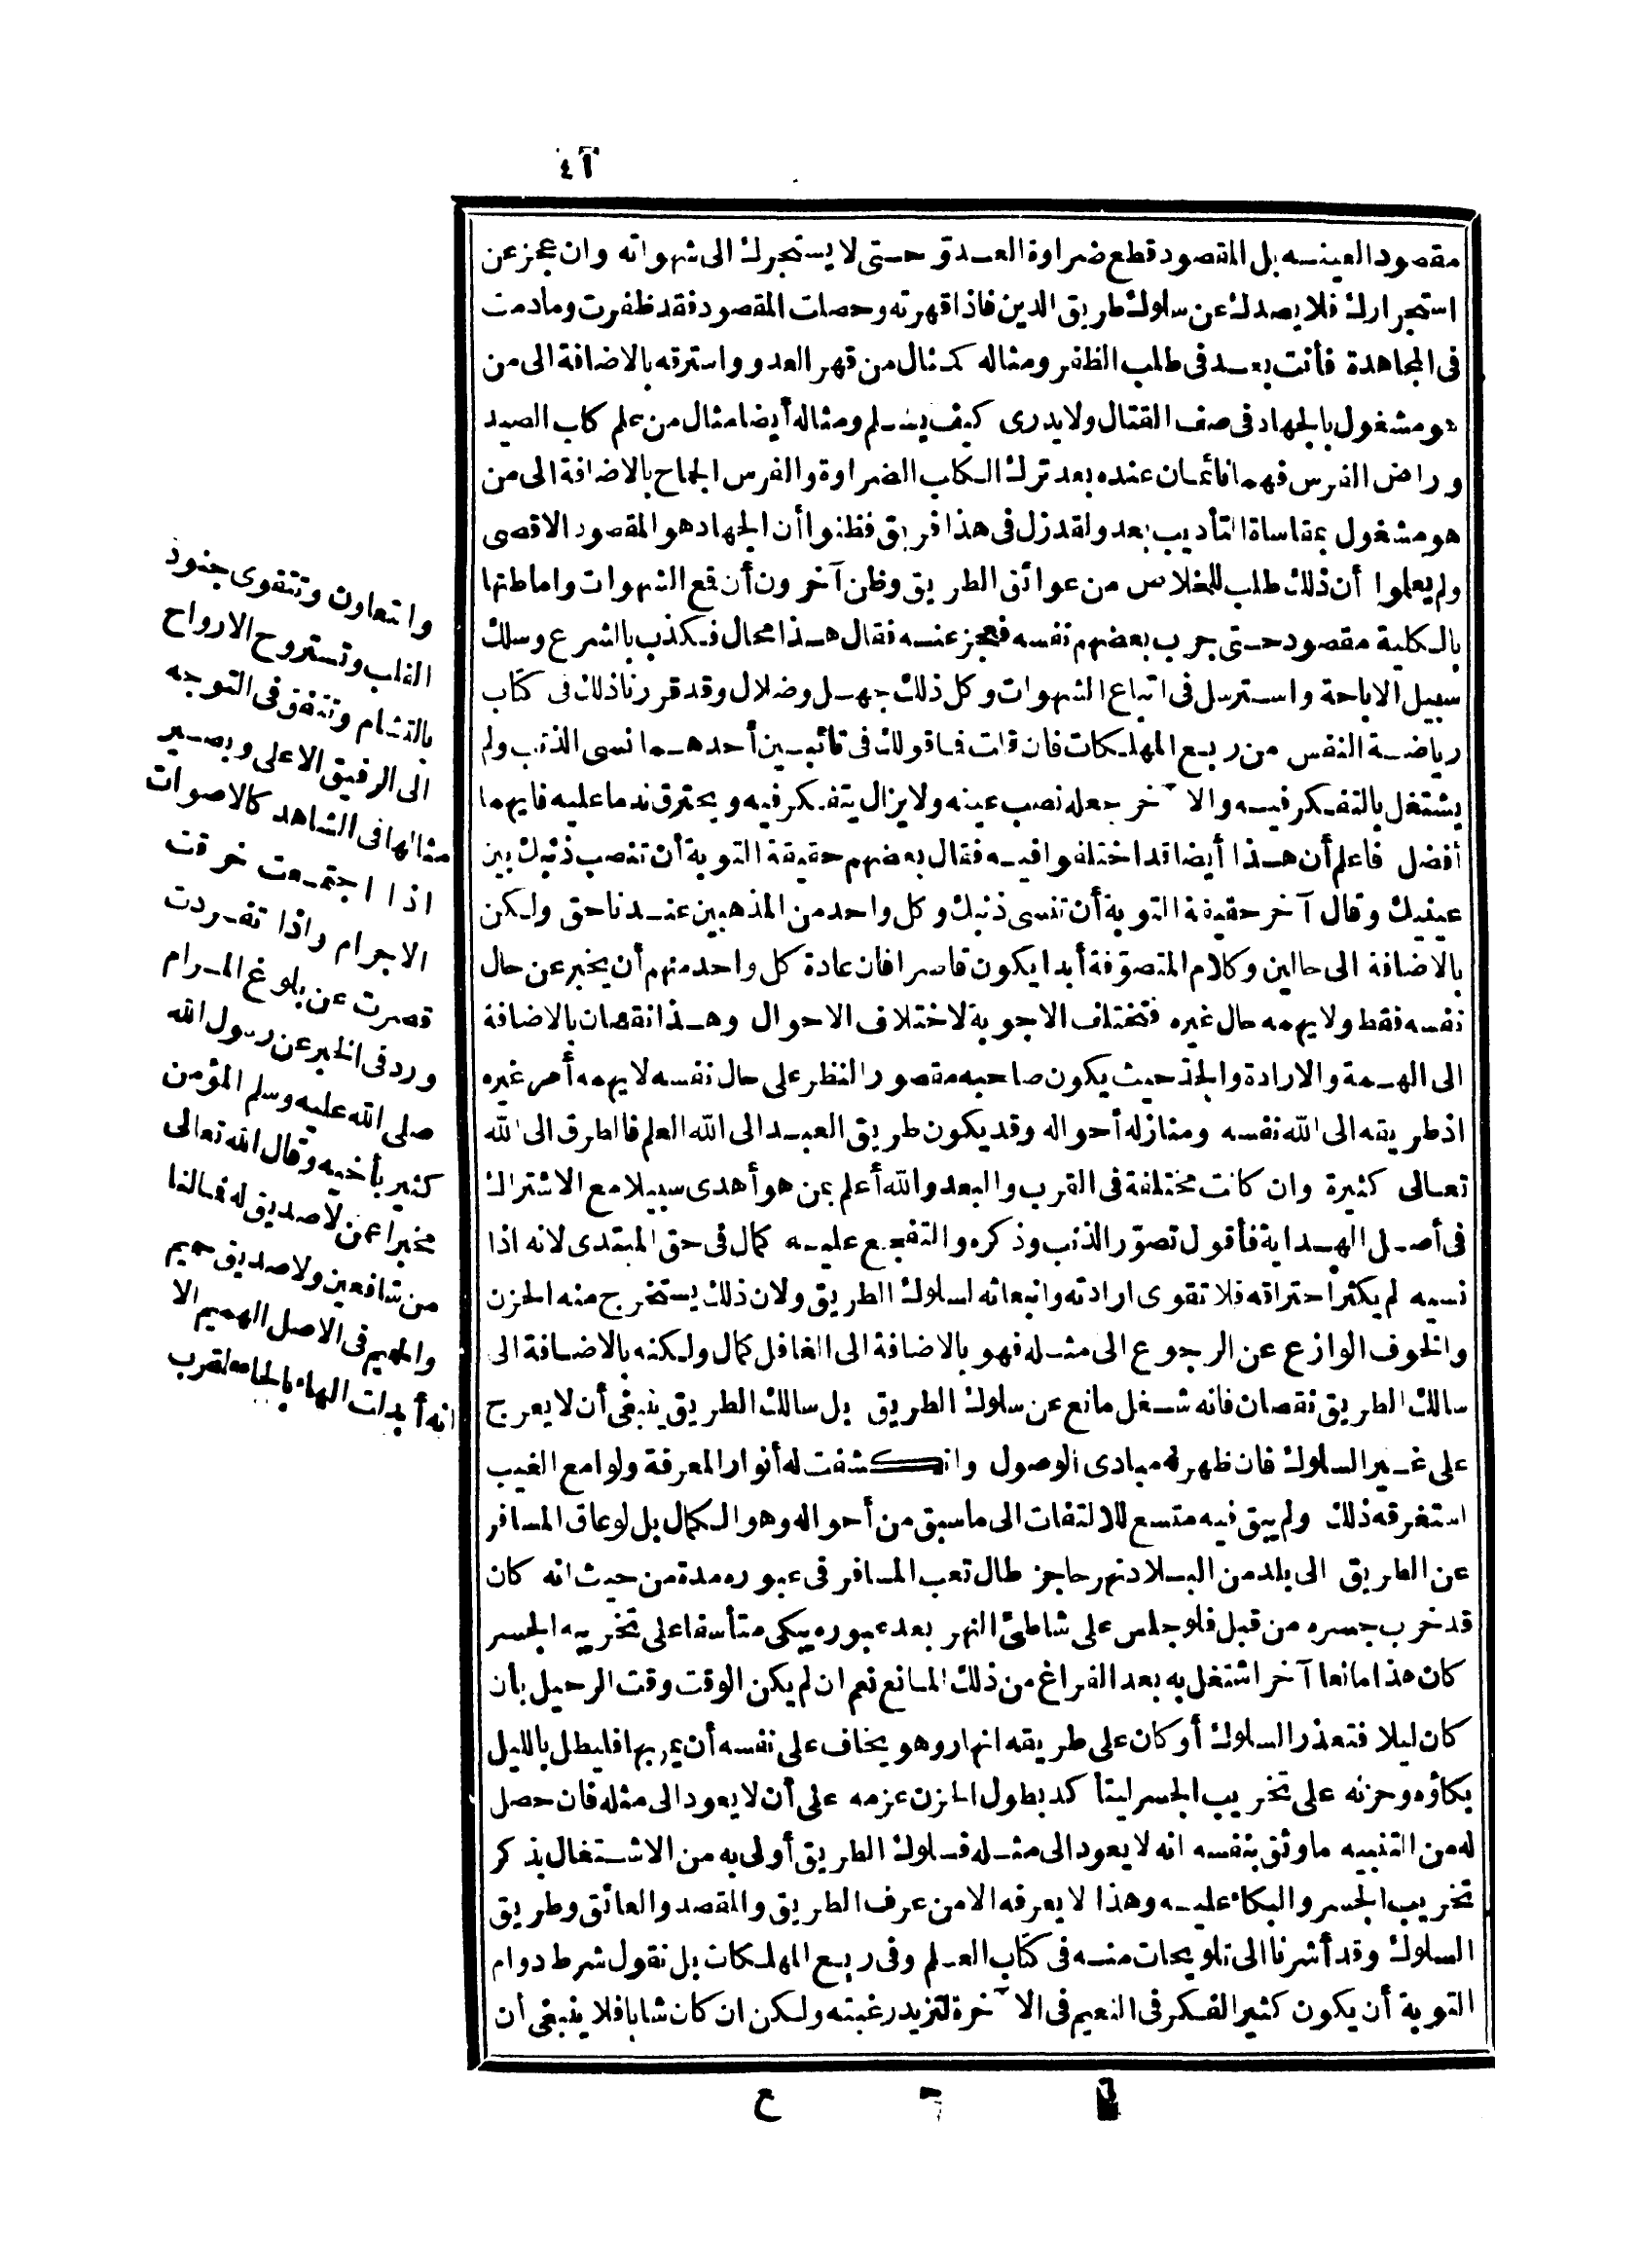 ٤١
مقصودا لعينه بل المقصود قطع ضراوة العدوّ حتى لا يستجرك الى شهواته وان عجز عن
استجرارك فلا يصدك عن سلوك طريق الدين فاذا قهرته وحصلت المقصود فقد ظفرت وما دمت
فى المجاهدة فأنت بعد فى طلب الظفر ومثاله كمثال من قهر العدو واسترقه بالاضافة الى من
هو مشغول بالجهاد فى صف القتال ولا يدرى كيف يسلم ومثاله أيضا مثال من علم كلب الصيد
وراض الفرس فهما نائمان عنده بعد ترك الكلب الضراوة والفرس الجماح بالاضافة الى من
هو مشغول بمقاساة التأديب بعد ولقد زل فى هذا فريق فظنوا أن الجهاد هو المقصود الاقصى
ولم يعلموا أن ذلك طلب للخلاص من عوائق الطريق وظن آخرون أن قمع الشهوات واماطتها
بالكلية مقصود حتى جرب بعضهم نفسه فعجز عنه فقال هذا محال فكذب بالشرع وسلك
سبيل الاباحة واسترسل فى اتباع الشهوات وكل ذلك جهل وضلال وقد قررنا ذلك فى كتاب
رياضة النفس من ربع المهلكات فان قلت فما قولك فى تائبين أحدهما نسى الذنب ولم
يشتغل بالتفكر فيه والآخر جعله نصب عينه ولا يزال يتفكر فيه ويحترق ندما عليه فايهما
أفضل فاعلم أن هذا أيضا قد اختلفوا فيه فقال بعضهم حقيقة التوبة أن تنصب ذنبك بين
عينيك وقال آخر حقيقة التوبة أن تنسى ذنبك وكل واحد من المذهبين عندنا حق ولكن
بالاضافة الى حالين وكلام المتصوّفة أبدا يكون قاصرا فان عادة كل واحد منهم أن يخبر عن حال
نفسه فقط ولا يهمه حال غيره فتختلف الاجوبة لاختلاف الاحوال وهذا نقصان بالاضافة
الى الهمة والارادة والجد حيث يكون صاحبه مقصور النظر على حال نفسه لا يهمه أمر غيره
اذ طريقه الى الله نفسه ومنازله أحواله وقد يكون طريق العبد الى الله العلم فالطرق الى الله
تعالى كثيرة وان كانت مختلفة فى القرب والبعد والله أعلم بمن هو أهدى سبيلا مع الاشتراك
فى أصل الهداية فأقول تصوّر الذنب وذكره والتفجع عليه كمال فى حق المبتدى لانه اذا
نسيه لم يكثر احتراقه فلا تقوى ارادته وانبعاثه لسلوك الطريق ولان ذلك يستخرج منه الحزن
والخوف الوازع عن الرجوع الى مثله فهو بالاضافة الى الغافل كمال ولكنه بالاضافة الى
سالك الطريق نقصان فانه شغل مانع عن سلوك الطريق بل سالك الطريق ينبغى أن لا يعرج
على غير السلوك فان ظهر له مبادى الوصول وانكشفت له أنوار المعرفة ولوامع الغيب
استغرقه ذلك ولم يبق فيه متسع للالتفات الى ما سبق من أحواله وهو الكمال بل لو عاق المسافر
عن الطريق الى بلد من البلاد نهر حاجز طال تعب المسافر فى عبوره مدة من حيث انه كان
قد خرب جسره من قبل فلو جلس على شاطئ النهر بعد عبوره يبكى متأسفا على تخريبه الجسر
كان هذا مانعا آخر اشتغل به بعد الفراغ من ذلك المانع نعم ان لم يكن الوقت وقت الرحيل بأن
كان ليلا فتعذر السلوك أو كان على طريقه أنهار وهو يخاف على نفسه أن يمر بها فليطل بالليل
بكاؤه وحزنه على تخريب الجسر ليتأكد بطول الحزن عزمه على أن لا يعود الى مثله فان حصل
له من التنبيه ما وثق بنفسه انه لا يعود الى مثله فسلوك الطريق أولى به من الاشتغال بذكر
تخريب الجسر والبكاء عليه وهذا لا يعرفه الا من عرف الطريق والمقصد والعائق وطريق
السلوك وقد أشرنا الى تلويحات منه فى كتاب العلم وفى ربع المهلكات بل نقول شرط دوام
التوبة أن يكون كثير الفكر فى النعيم فى الآخرة لتزيد رغبته ولكن ان كان شابا فلا ينبغى أن
واتعاون وتتقوى جنود
القلب وتستروح الارواح
بالتشام وتتفق فى التوجه
الى الرفيق الاعلى ويصير
مثالها فى الشاهد كالاصوات
اذا اجتمعت خرقت
الاجرام واذا تفردت
قصرت عن بلوغ المرام
ورد فى الخبر عن رسول الله
صلى الله عليه وسلم المؤمن
كثير بأخيه وقال الله تعالى
مخبرا عمن لا صديق له فمالنا
من شافعين ولا صديق حميم
والحميم فى الاصل الهميم الا
انه أبدلت الهاء بالحاء لقرب
ح